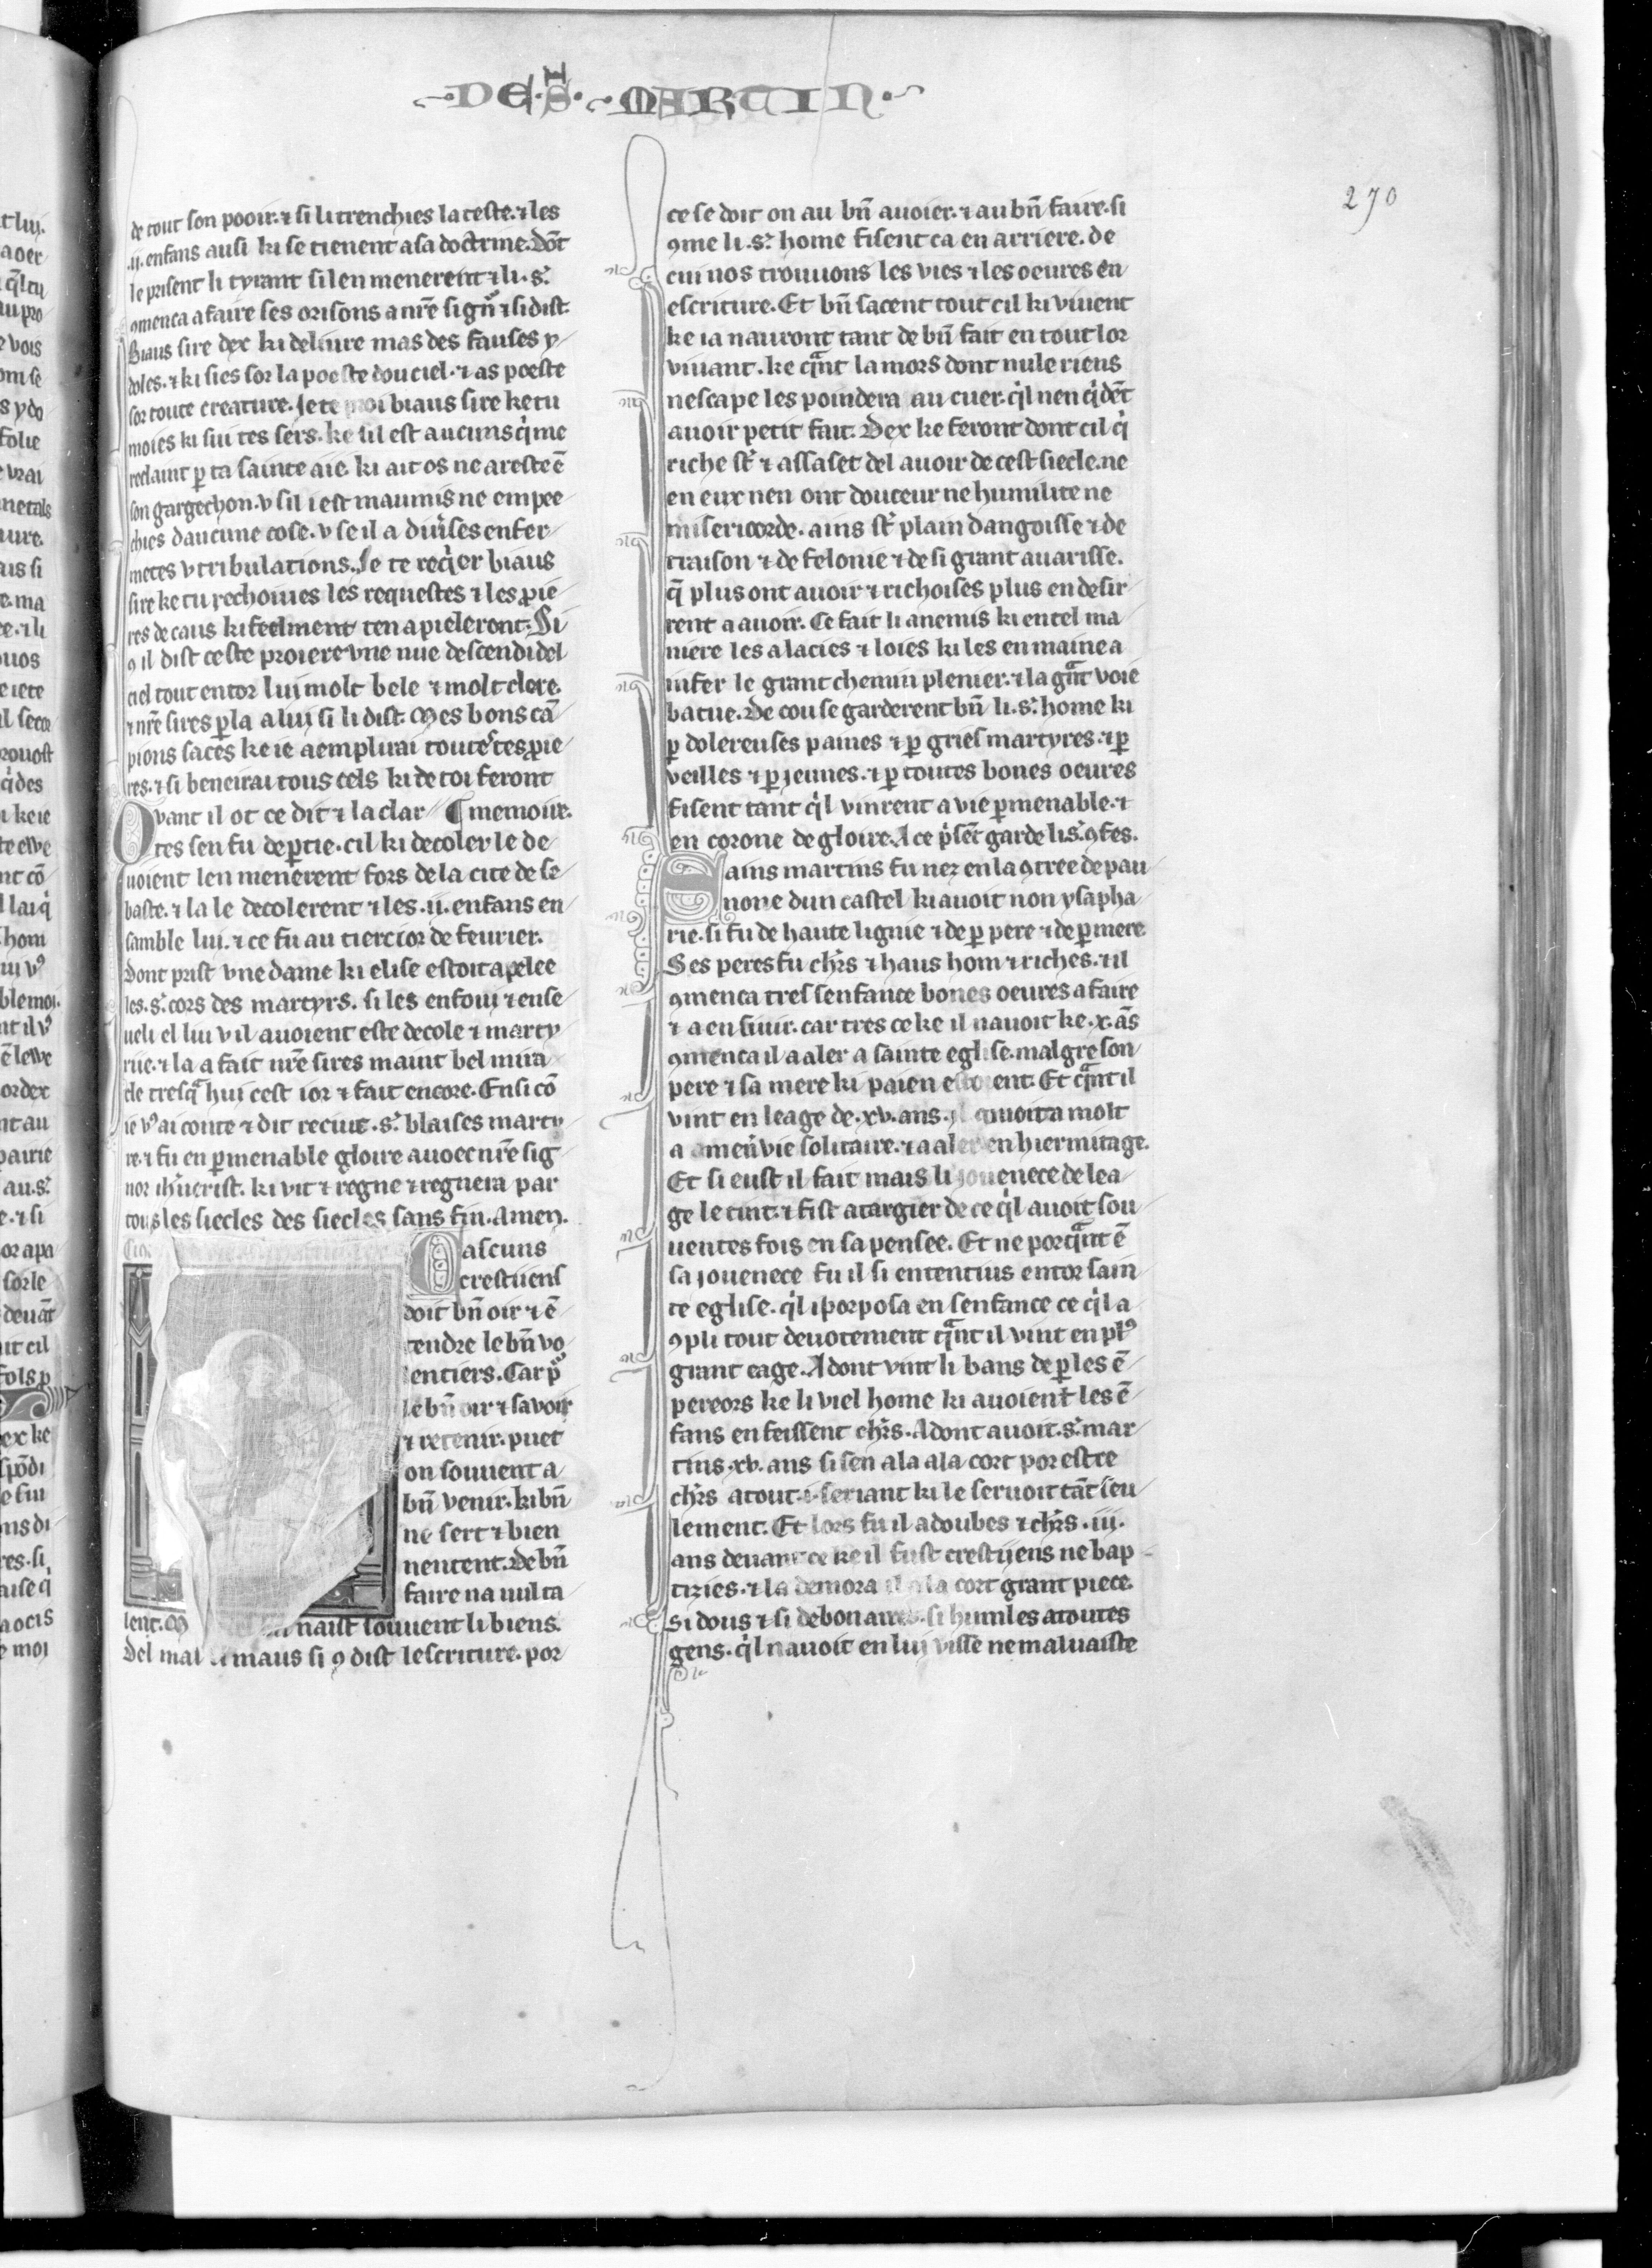 DE. S. MARTIN.
270
de tout son pooir. ⁊ si li trenchies la teste. ⁊ les
.ij. enfans ausi ki se tienent a sa doctrine. Dōt
le prisent li tyrant si len menerent ⁊ li .s.
ꝯmenca a faire ses orisons a nr̄e sign̄ ⁊ si dist.
Biaus sire dex ki deliure mas des fauses y-
doles. ⁊ ki sies sor la poeste dou ciel. ⁊ as poeste
sor toute creature. Je te proi biaus sire ke tu
moies ki sui tes sers. ke sil est aucuns q̇ me
reclaint ꝑ ta sainte aie. ki ait os ne areste ē
son gargechon. v sil i est maumis ne empee-
chies daucune cose. v se il a diuses enfer-
metes v tribulations. Je te req̇er biaus
sire ke tu rechoiues les requestes ⁊ les ꝓie-
res de caus ki feelment ten apieleront. Si
ꝯ il dist ceste proiere vne nue descendi del
ciel tout entor lui molt bele ⁊ molt clere.
⁊ nr̄e sires ꝑla a lui si li dist. Mes bons cā-
pions saces ke ie aemplirai toutes tes ꝓie-
res. ⁊ si beneirai tous cels ki de toi feront
Qvant il ot ce dit ⁊ la clar- ¶ memoire.
tes sen fu deꝑtie. cil ki decoler le de-
uoient len menerent fors de la cite de se-
baste. ⁊ la le decolerent ⁊ les .ij. enfans en-
samble lui. ⁊ ce fu au tierc ior de feurier.
Dont prist vne dame ki elise estoit apelee
les .s. cors des martyrs. si les enfoui ⁊ ense-
ueli el liu v il auoient este decole ⁊ marty-
rie. ⁊ la a fait nr̄e sires maint bel mira-
cle tresq̄ hui cest ior ⁊ fait encore. Ensi cō
ie vꝰ ai conte ⁊ dit reciut .s. blaises marty-
re. ⁊ fu en ꝑmenable gloire auoec nr̄e sig-
nor ih̄ucrist. ki vit ⁊ regne ⁊ regnera par
tous les siecles des siecles sans fin. Amen.
Cascuns
crestiiens
doit bn̄ oir ⁊ ē-
tendre le bn̄ vo-
lentiers. Car ꝑ
le bn̄ oir ⁊ savoir
⁊ retenir. puet
on souuent a
bn̄ venir. ki bn̄
ne sert ⁊ bien
nentent. De bn̄
faire na nul ta-
lent. naist souuent li biens.
Del mal li maus si ꝯ dist lescriture. por
ce se doit on au bn̄ auoier. ⁊ au bn̄ faire. si
ꝯme li .s. home fisent ca en arriere. de
cui nos trouuons les vies ⁊ les oeures en
escriture. Et bn̄ sacent tout cil ki viuent
ke ia nauront tant de bn̄ fait en tout lor
viuant. ke q̄nt la mors dont nule riens
nescape les poindera au cuer. q̇l nen q̇dēt
auoir petit fait. Dex ke feront dont cil q̇
riche st̄ ⁊ assaset del auoir de cest siecle. ne
en eux nen ont douceur ne humilite ne
misericorde. ains st̄ plain dangoisse ⁊ de
traison ⁊ de felonie ⁊ de si grant auarisse.
q̄ plus ont auoir ⁊ richoises plus en desir-
rent a auoir. Ce fait li anemis ki en tel ma-
niere les a lacies ⁊ loies ki les en maine a
infer le grant chemin plenier. ⁊ la gāt voie
batue. De cou se garderent bn̄ li .s. home ki
ꝑ dolereuses paines ⁊ ꝑ gries martyres. ⁊ ꝑ
veilles ⁊ ꝑ jeunes. ⁊ ꝑ toutes bones oeures
fisent tant q̇l vinrent a vie ꝑmenable. ⁊
en corone de gloire. A ce p̄sēt garde li .s. ꝯfes.
Sains martins fu nez en la ꝯtree de pau-
none dun castel ki auoit non ysapha-
rie. si fu de haute lignie ⁊ de ꝑ pere ⁊ de ꝑ mere
Ses peres fu chr̄s ⁊ haus hom ⁊ riches. ⁊ il
ꝯmenca tres senfance bones oeures a faire
⁊ a ensiuir. car tres ce ke il nauoit ke .x. ās
ꝯmenca il a aler a sainte eglise. malgre son
pere ⁊ sa mere ki paien estoient. Et q̄nt il
vint en leage de .xv. ans. il couoita molt
a amen̄ vie solitaire. ⁊ a aler en hiermitage.
Et si eust il fait mais li jouenece de lea-
ge le tint. ⁊ fist atargier de ce q̇l auoit sou-
uentes fois en sa pensee. Et ne porq̄nt ē
sa jouenece fu il si ententius entor sain-
te eglise. q̇l i porposa en senfance ce q̇l a-
ꝯpli tout deuotement q̄nt il vint en plꝰ
grant eage. Adont vint li bans de ꝑ les ē-
pereors ke li viel home ki auoient les ē-
fans en feissent chr̄s. Adont auoit .s. mar-
tins .xv. ans si sen ala a la cort por estre
chr̄s atout .i. seriant ki le seruoit tāt seu-
lement. Et lors fu il adoubes ⁊ chr̄s .iij.
ans deuant ce ke il fust crestijens ne bap-
tizies. ⁊ la demora il a la cort grant piece.
si dous ⁊ si debonaires. si humles a toutes
gens. q̇l nauoit en lui visse ne maluaiste